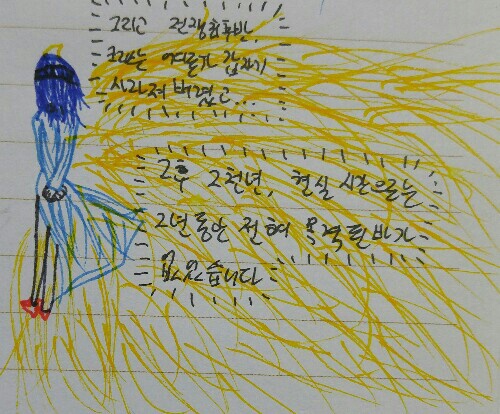 그리고 전쟁최후반,
그라는 여돌가 갑자기
사라져버렸고...
그후 2천년, 현실 시간으로는
2년동안 전혀 목격된바가
없었습니다